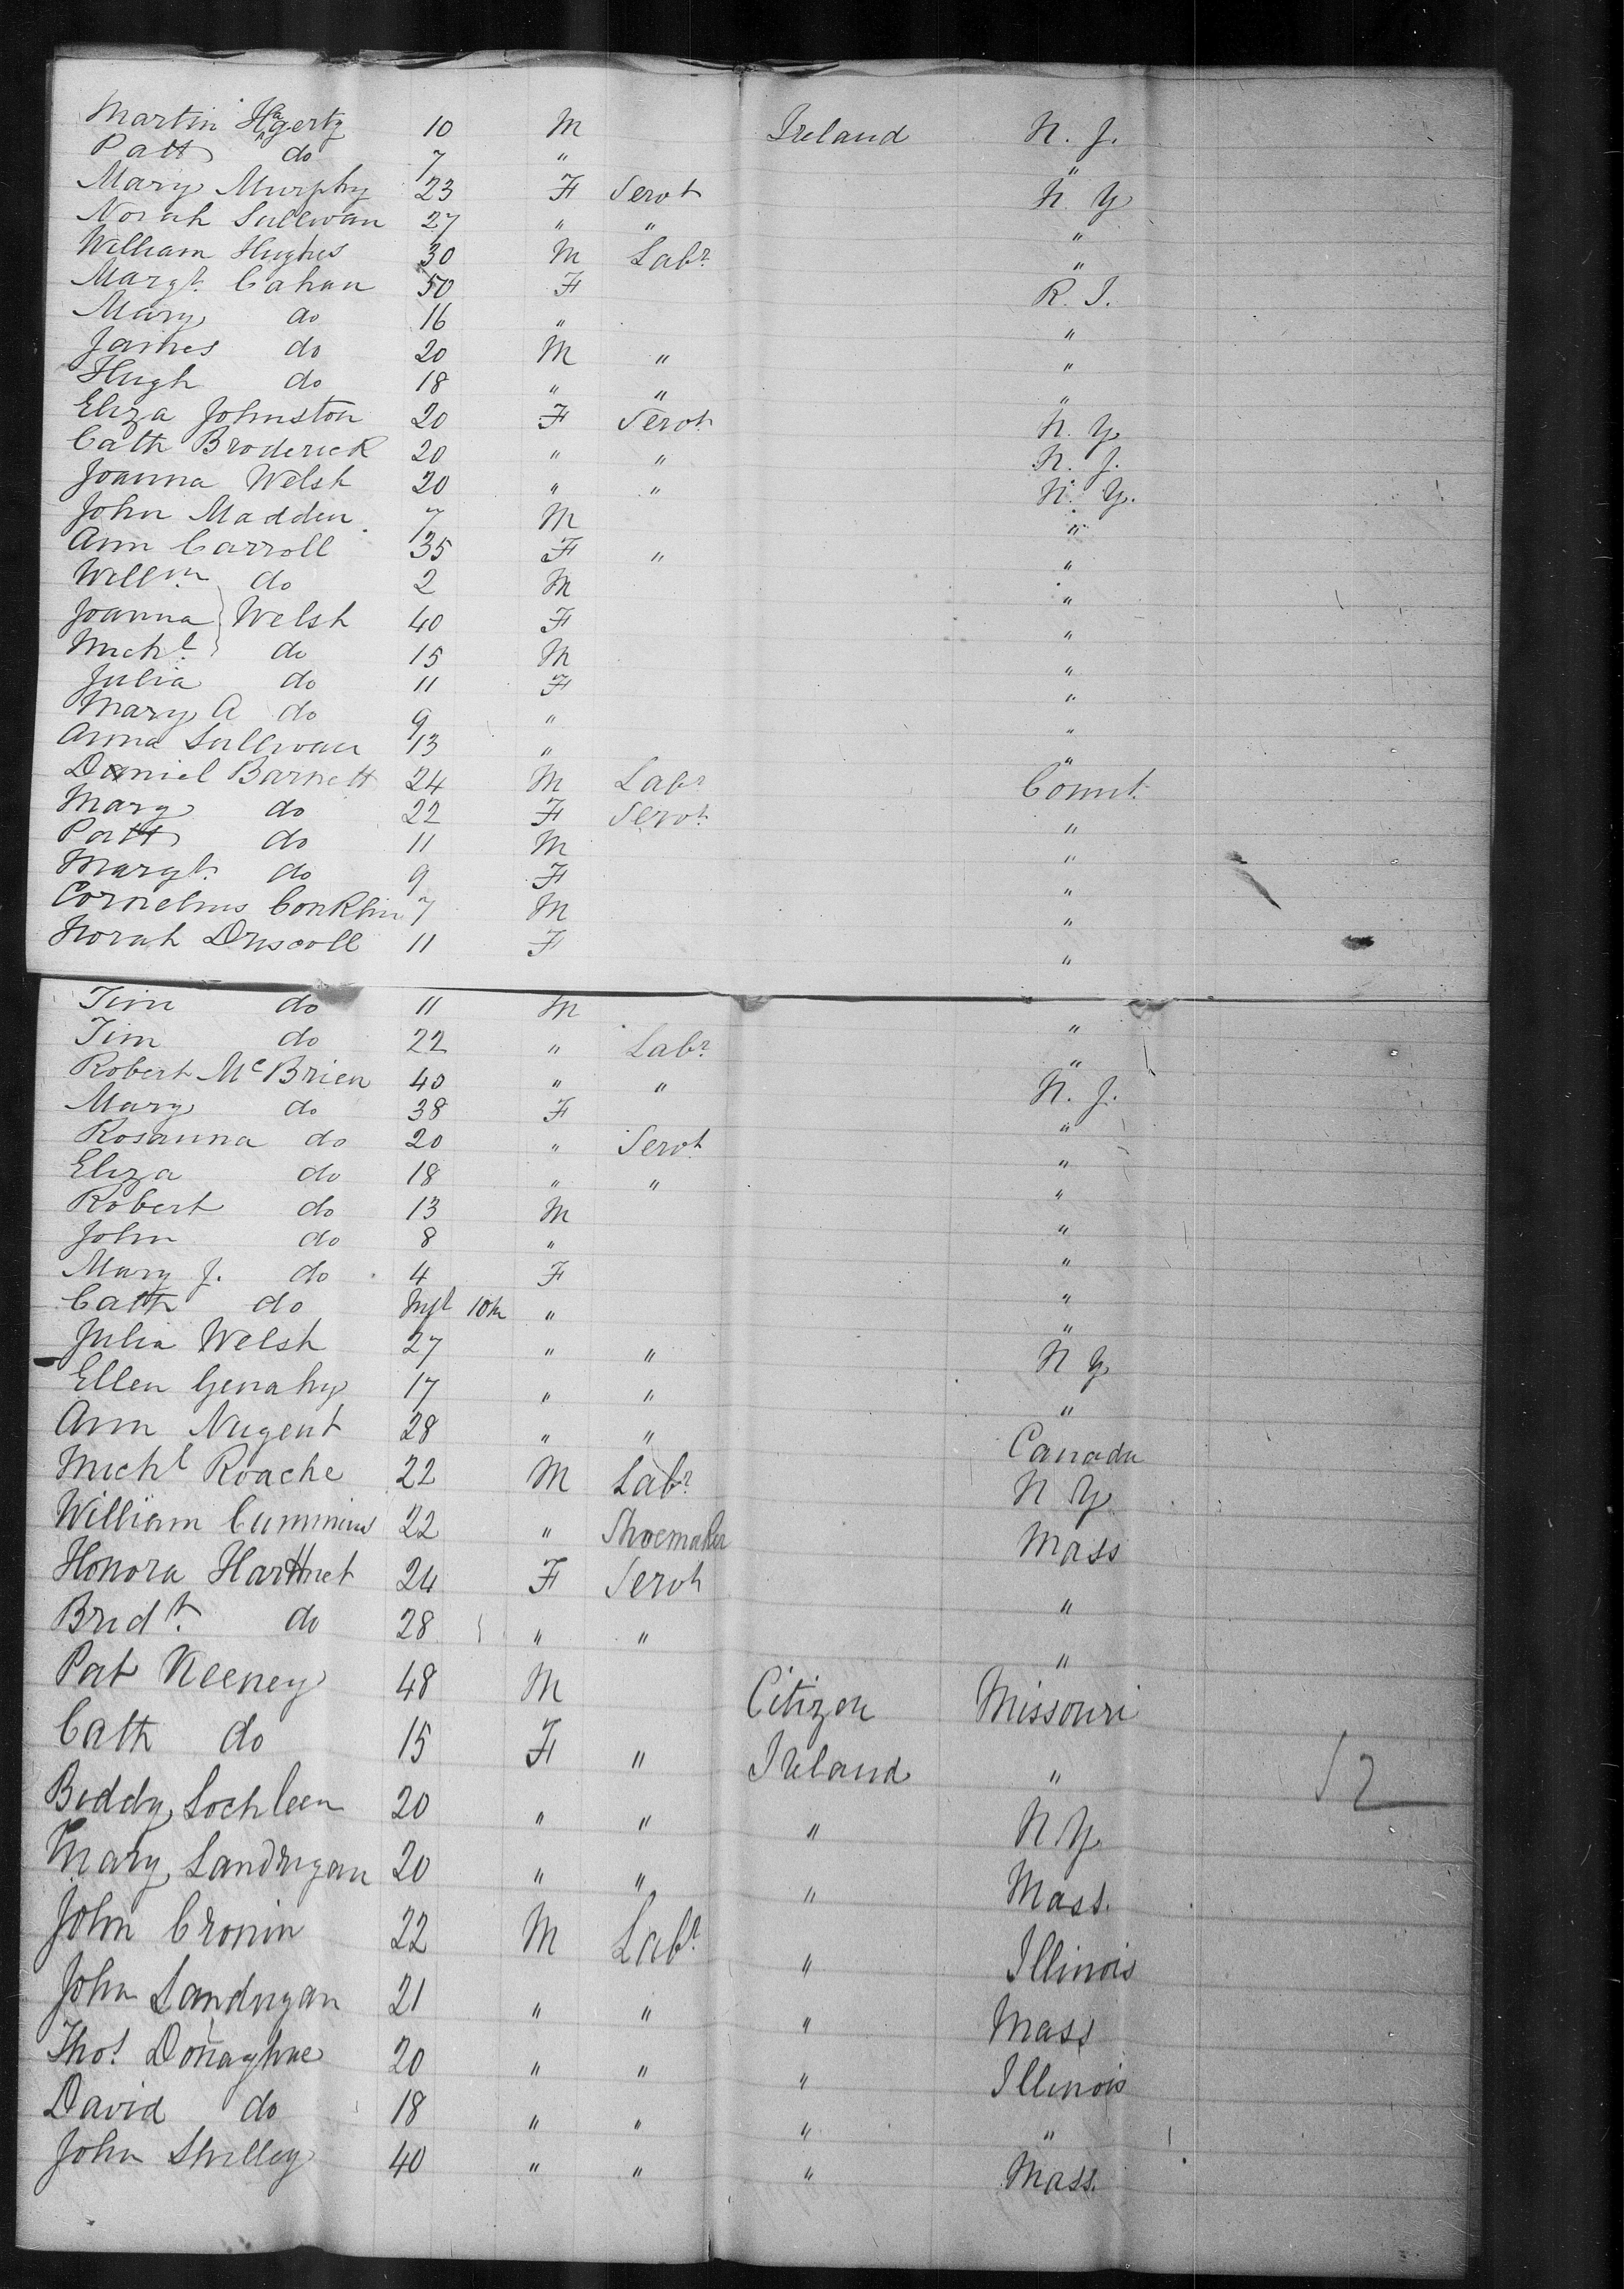 Martin Hagerty 10 M Ireland N. J.
Patt do 7 " "
Mary Murphy 23 F Servt N. Y
Norah Sullivan 27 " " "
William Hughes 30 M Labr "
Margt. Cahan 50 F R. I.
Mary do 16 " "
James do 20 M " "
Hugh do 18 " " "
Eliza Johnston 20 F Servt N. Y
Cath Broderick 20 " " N. J.
Joanna Welsh 20 " " N. Y.
John Madden 7 M "
Ann Carroll 35 F " "
Willm. do 2 M "
Joanna Welsh 40 F "
Michl. do 15 M "
Julia do 11 F "
Mary A do 9 " "
Anna Sullivan 13 " "
Daniel Barnett 24 M Labr Connt.
Mary do 22 F Servt "
Patt do 11 M "
Margt. do 9 F "
Cornelius Conklin 7 M "
Norah Driscoll 11 F "
Tim do 11 M "
Tim do 22 " Labr "
Robert McBrien 40 " " N. J.
Mary do 38 F "
Rosanna do 20 " Servt "
Eliza do 18 " " "
Robert do 13 M "
John do 8 " "
Mary J. do 4 F "
Cath do Inft 10m " "
Julia Welsh 27 " " N Y
Ellen Genahy 17 " " "
Ann Nugent 28 " " Canada
Michl Roache 22 M Labr N Y
William Cummins 22 " Shoemaker Mass
Honora Harttnet 24 F Servt "
Bridt. do 28 " " "
Pat Keeney 48 M Citizen Missouri
Cath do 15 F " Ireland "
Biddy Lochleen 20 " " " N Y
Mary Landrigan 20 " " " Mass.
John Cronin 22 M Labr " Illinois
John Landrigan 21 " " " Mass
Thos Donaghue 20 " " " Illinois
David do 18 " " " "
John Skilley 40 " " " Mass.